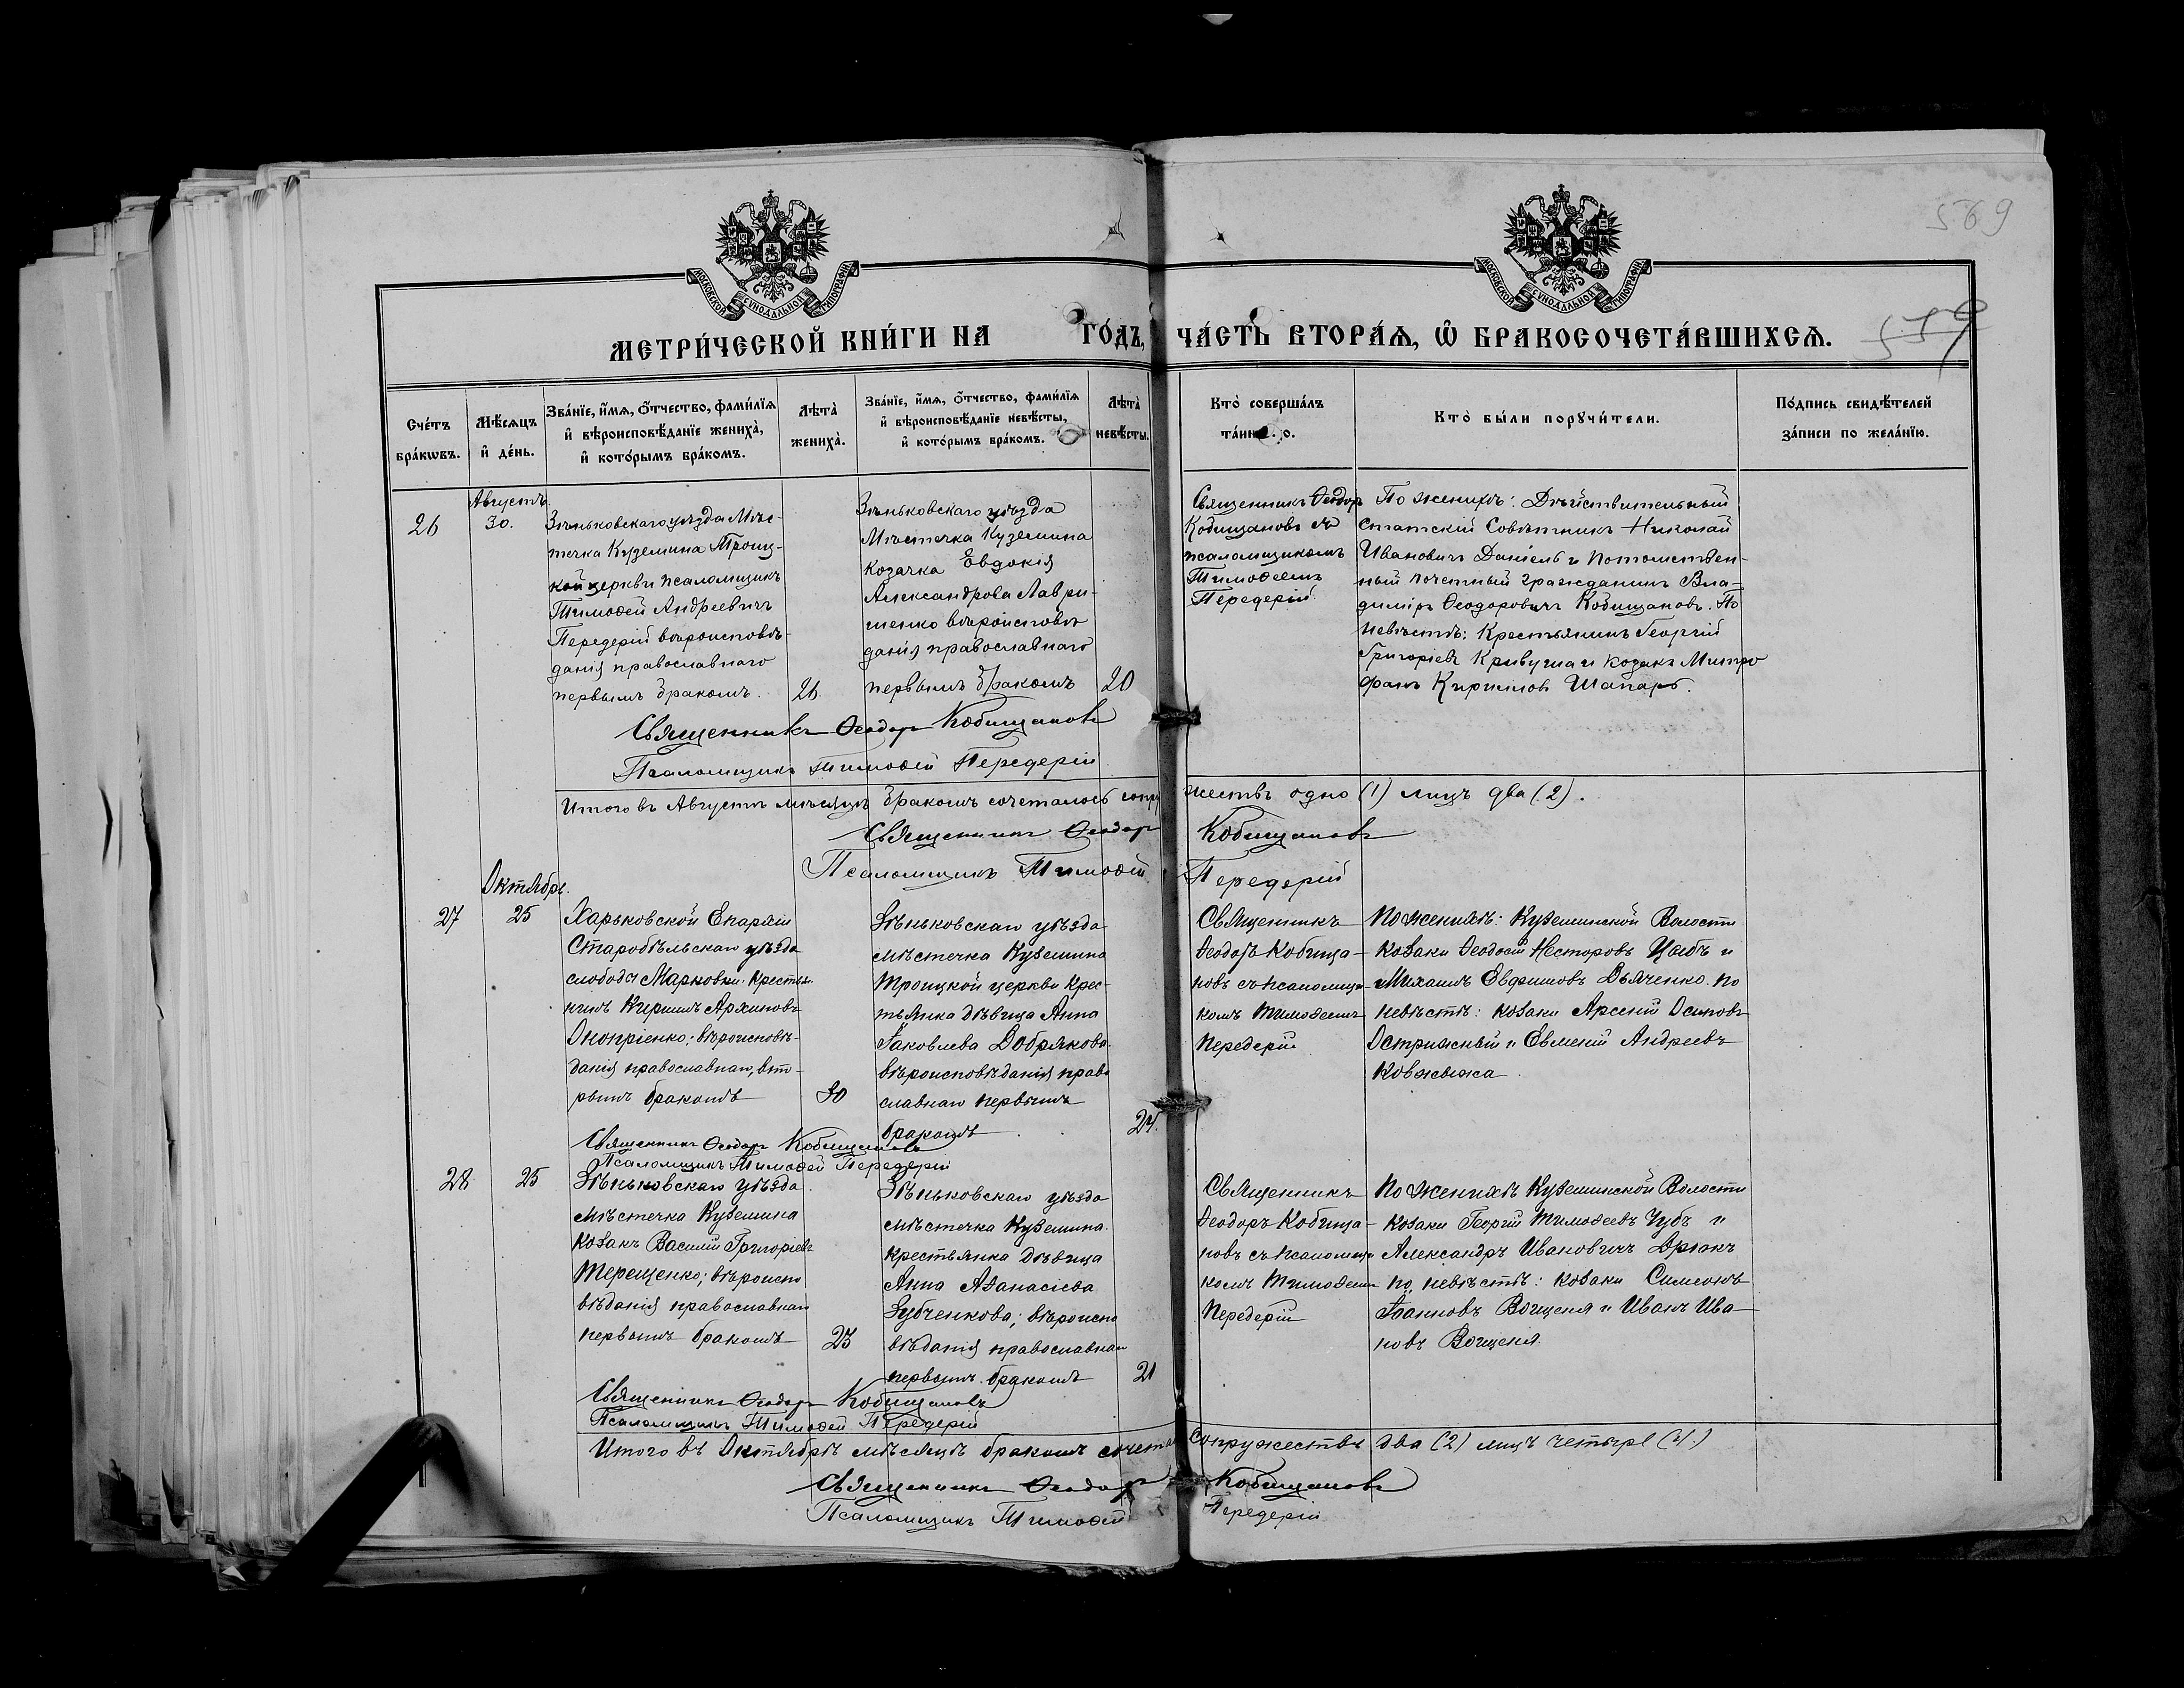 569
579
МОСКОВСКОЙ СѴНОДАЛЬНОЙ ТИПОГРАФІИ
МОСКОВСКОЙ СѴНОДАЛЬНОЙ ТИПОГРАФІИ
МЕТРИ́ЧЕСКОЙ КНИ́ГИ НА ГО́ДЪ, ЧА́СТЬ ВТОРА́Я, Ѡ БРАКОСОЧЕТА́ВШИХСЯ.
Сче́тъ
бра́кѡвъ.
Мѣ́сяцъ
и де́нь.
Зва́нїе, и́мя, о́тчество, фами́лїя
и вѣроисповѣ́данїе жениха̀,
и кото́рымъ бра́комъ.
Лѣта̀
жениха̀.
Зва́нїе, и́мя, о́тчество, фами́лїя
и вѣроисповѣ́данїе невѣ́сты,
и кото́рымъ бра́комъ.
Лѣта̀
невѣ́сты.
Кто̀ соверша́лъ
та́ин
Кто̀ бы́ли порꙋчи́тели.
По́дпись свидѣ́телей
за́писи по жела́нїю.
26
Августъ
30.
Зѣньковскаго уѣзда Мѣс-
течка Куземина Троиц-
кой церкви псаломщикъ
Тимоѳей Андреевичъ
Передерій вѣроисповѣ-
данія православнаго
первымъ бракомъ.
26
Зѣньковскаго уѣзда
Мѣстечка Куземина
козачка Евдокія
Александрова Лаври-
шенко вѣроисповѣ
данія православнаго
первымъ бракомъ
20
Священникъ Ѳеодоръ
Кобищановъ съ
псаломщикомъ
Тимоѳеемъ
Передерій.
По женихѣ: Дѣйствительный
Статскій Совѣтникъ Николай
Ивановичъ Даніель и Потомствен-
ный почетный гражданинъ Вла-
диміръ Ѳеодоровичъ Кобищановъ. По
невѣстѣ: Крестьянинъ Георгій
Григоріевъ Кривуша и козакъ Митро
фанъ Кирилловъ Шапаръ.
Священникъ Ѳеодоръ Кобищановъ
Псаломщикъ Тимоѳей Передерій
Итого въ Августѣ мѣсяцѣ бракомъ сочеталось супру жествъ одно (1) лицъ два (2).
Священникъ Ѳеодоръ Кобищановъ
Псаломщикъ Тимоѳей Передерій
Октябрь.
27
25
Харьковской Епархіи
Старобѣльскаго уѣзда
слободы Марковки крестья
нинъ Кириллъ Архиповъ
Онопріенко; вѣроисповѣ-
данія православнаго, вто-
рымъ бракомъ
30
Зѣньковскаго уѣзда
мѣстечка Куземина
Троицкой церкви крес-
тьянка дѣвица Анна
Іаковлева Добрякова
вѣроисповѣданія право
славнаго первымъ
бракомъ
24.
Священникъ
Ѳеодоръ Кобища-
новъ съ псаломщи-
комъ Тимоѳеемъ
Передерій
По женихѣ: Куземинской Волости
козаки Ѳеодосій Несторовъ Цыбъ и
Михаилъ Евфимовъ Дьяченко. По
невѣстѣ: козаки Арсеній Осиповъ
Острижный и Евменій Андреевъ
Ковжижа.
Священникъ Ѳеодоръ Кобищановъ
Псаломщикъ Тимоѳей Передерій
28
25
Зѣньковскаго уѣзда
мѣстечка Куземина
козакъ Василій Григоріевъ
Терещенко; вѣроиспо
вѣданія православнаго
первымъ бракомъ
23
Зѣньковскаго уѣзда
мѣстечка Куземина.
крестьянка дѣвица
Анна Аѳанасіева
Зубченкова; вѣроиспо
вѣданія православнаго
первымъ бракомъ
21
Священникъ
Ѳеодоръ Кобища-
новъ съ псаломщи
комъ Тимоѳеемъ
Передерій
По женихѣ Куземинской Волости
козаки Георгій Тимоѳеевъ Чубъ и
Александръ Ивановичъ Дрюкъ
по невѣстѣ: козаки Симеонъ
Іоанновъ Вощеня и Иванъ Ива
новъ Вощеня.
Священникъ Ѳеодоръ Кобищановъ
Псаломщикъ Тимоѳей Передерій
Итого въ Октябрѣ мѣсяцѣ бракомъ сочета супружествъ два (2) лицъ четыре (4.)
Священникъ Ѳеодоръ Кобищановъ
Псаломщикъ Тимоѳей Передерій